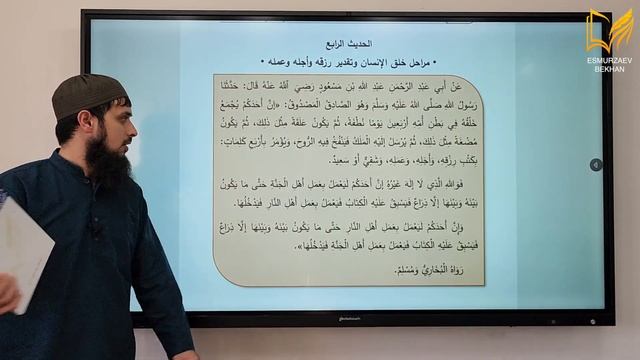 الحديث الرابع
• مراحل خلق الإنسان وتقدير رزقه وأجله وعمله •
عَنْ أَبِي عَبْدِ الرَّحْمَنِ عَبْدِ اللهِ بْنِ مَسْعُودٍ رَضِيَ اللهُ عَنْهُ قَالَ: حَدَّثَنَا
رَسُولُ اللهِ صَلَّى اللهُ عَلَيْهِ وَسَلَّمَ وَهُوَ الصَّادِقُ الْمَصْدُوقُ: «إِنَّ أَحَدَكُمْ يُجْمَعُ
خَلْقُهُ فِي بَطْنِ أُمِّهِ أَرْبَعِينَ يَوْمًا نُطْفَةً، ثُمَّ يَكُونُ عَلَقَةً مِثْلَ ذَلِكَ، ثُمَّ يَكُونُ
مُضْغَةً مِثْلَ ذَلِكَ، ثُمَّ يُرْسَلُ إِلَيْهِ الْمَلَكُ فَيَنْفُخُ فِيهِ الرُّوحَ، وَيُؤْمَرُ بِأَرْبَعِ كَلِمَاتٍ:
بِكَتْبِ رِزْقِهِ، وَأَجَلِهِ، وَعَمَلِهِ، وَشَقِيٌّ أَوْ سَعِيدٌ.
فَوَاللهِ الَّذِي لَا إِلَهَ غَيْرُهُ إِنَّ أَحَدَكُمْ لَيَعْمَلُ بِعَمَلِ أَهْلِ الْجَنَّةِ حَتَّى مَا يَكُونُ
بَيْنَهُ وَبَيْنَهَا إِلَّا ذِرَاعٌ فَيَسْبِقُ عَلَيْهِ الْكِتَابُ فَيَعْمَلُ بِعَمَلِ أَهْلِ النَّارِ فَيَدْخُلُهَا.
وَإِنَّ أَحَدَكُمْ لَيَعْمَلُ بِعَمَلِ أَهْلِ النَّارِ حَتَّى مَا يَكُونُ بَيْنَهُ وَبَيْنَهَا إِلَّا ذِرَاعٌ
فَيَسْبِقُ عَلَيْهِ الْكِتَابُ فَيَعْمَلُ بِعَمَلِ أَهْلِ الْجَنَّةِ فَيَدْخُلُهَا».
رَوَاهُ الْبُخَارِيُّ وَمُسْلِمٌ.
ESMURZAEV
BEKHAN